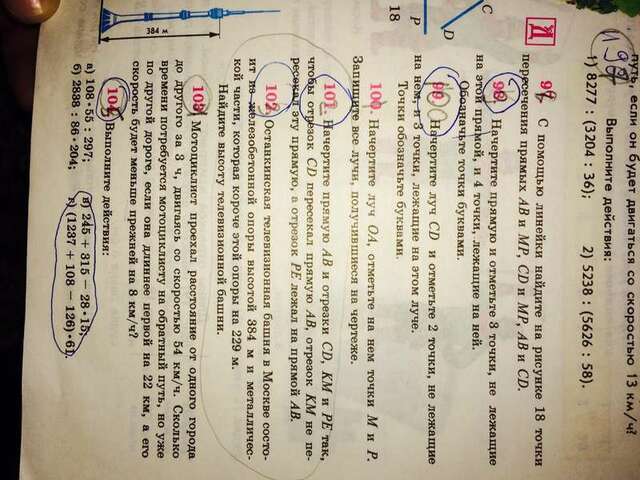 путь, если он будет двигаться со скоростью 13 км/ч?
Выполните действия:
1) 8277 : (3204 : 36);   2) 5238 : (5626 : 58).
Д
С помощью линейки найдите на рисунке 18 точки
пересечения прямых AB и MP, CD и MP, AB и CD.
Начертите прямую и отметьте 3 точки, не лежащие
на этой прямой, и 4 точки, лежащие на ней.
Обозначьте точки буквами.
Начертите луч CD и отметьте 2 точки, не лежащие
на нем, и 3 точки, лежащие на этом луче.
Точки обозначьте буквами.
100. Начертите луч OA, отметьте на нем точки M и P.
Запишите все лучи, получившиеся на чертеже.
101. Начертите прямую AB и отрезки CD, KM и PE так,
чтобы отрезок CD пересекал прямую AB, отрезок KM не пе-
ресекал эту прямую, а отрезок PE лежал на прямой AB.
102. Останкинская телевизионная башня в Москве состо-
ит из железобетонной опоры высотой 384 м и металличес-
кой части, которая короче этой опоры на 229 м.
Найдите высоту телевизионной башни.
103. Мотоциклист проехал расстояние от одного города
до другого за 3 ч, двигаясь со скоростью 54 км/ч. Сколько
времени потребуется мотоциклисту на обратный путь, но уже
по другой дороге, если она длиннее первой на 22 км, а его
скорость будет меньше прежней на 8 км/ч?
104. Выполните действия:
а) 108 · 55 : 297;   в) 245 + 315 − 28 · 15;
б) 2888 : 36 · 204;   г) (1237 + 108 − 126) · 61.
C
D
P
18
384 м